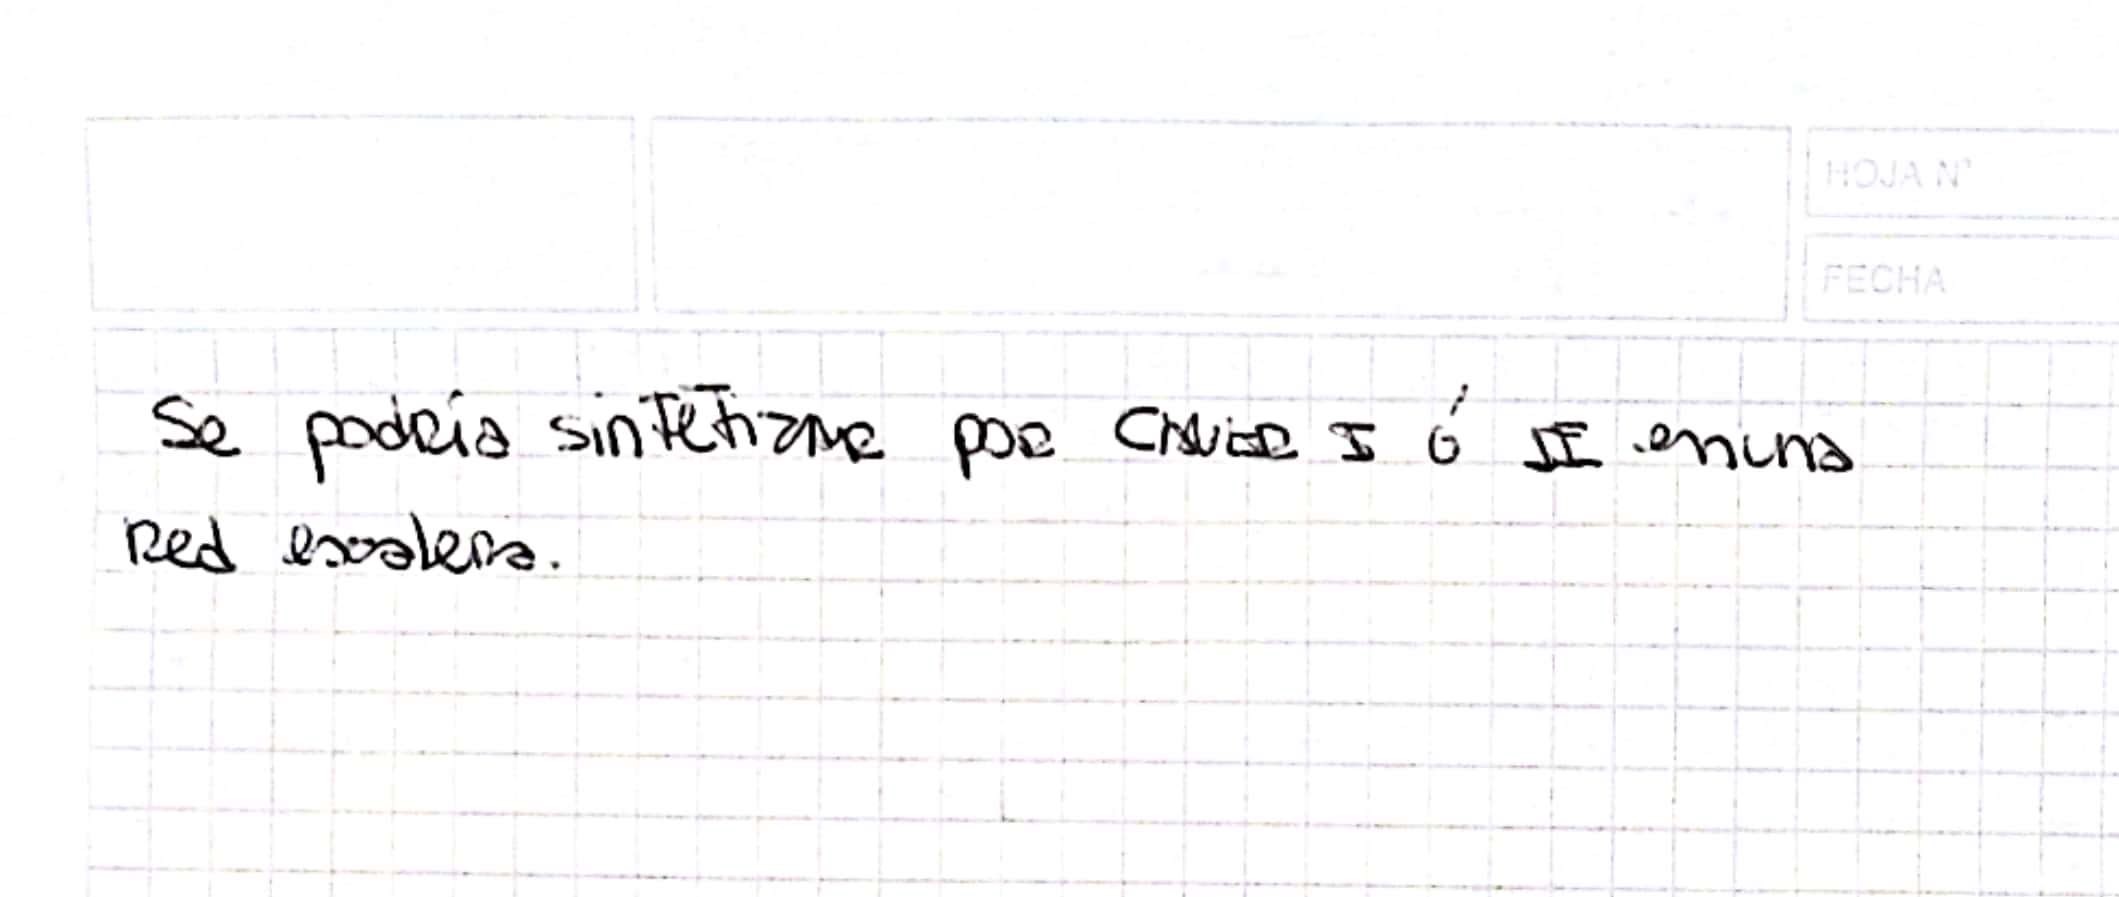 HOJA N°
FECHA
Se podría sintetizar por Cauer I ó II en una
Red escalera.